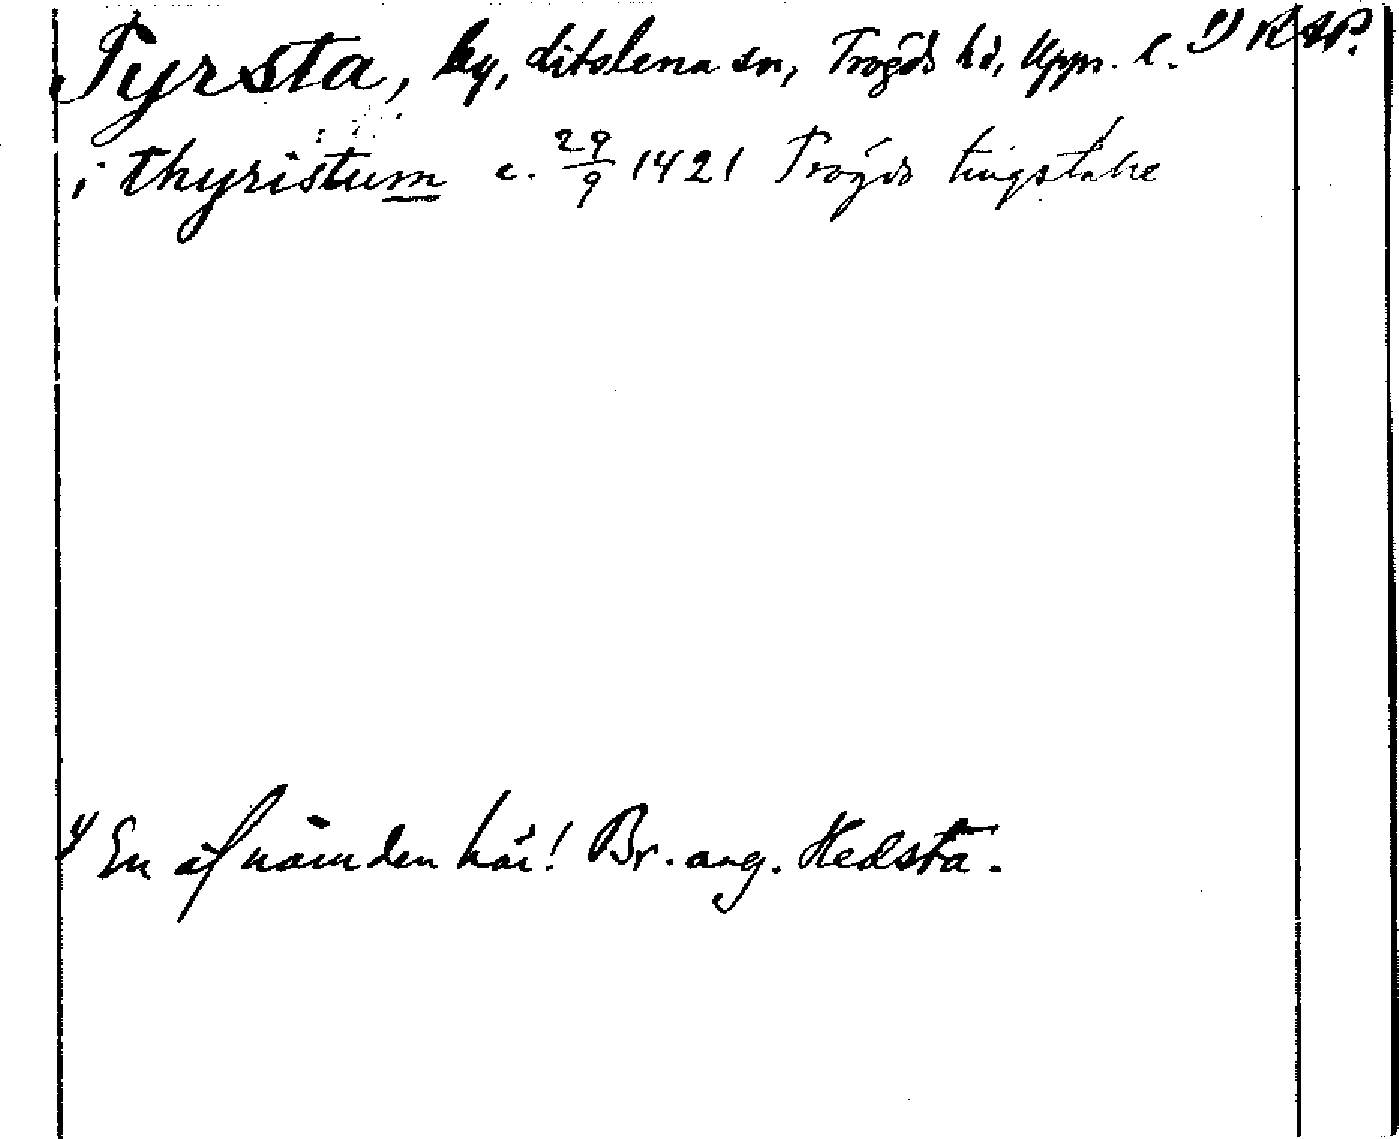 Tyrsta, by, Litslena sn, Trögds hd, Upps. l. 1) RAP.
i thyristum c. 29/9 1421 Trögds tingstake
1) En af nämden här! Br. ang. Hedsta.